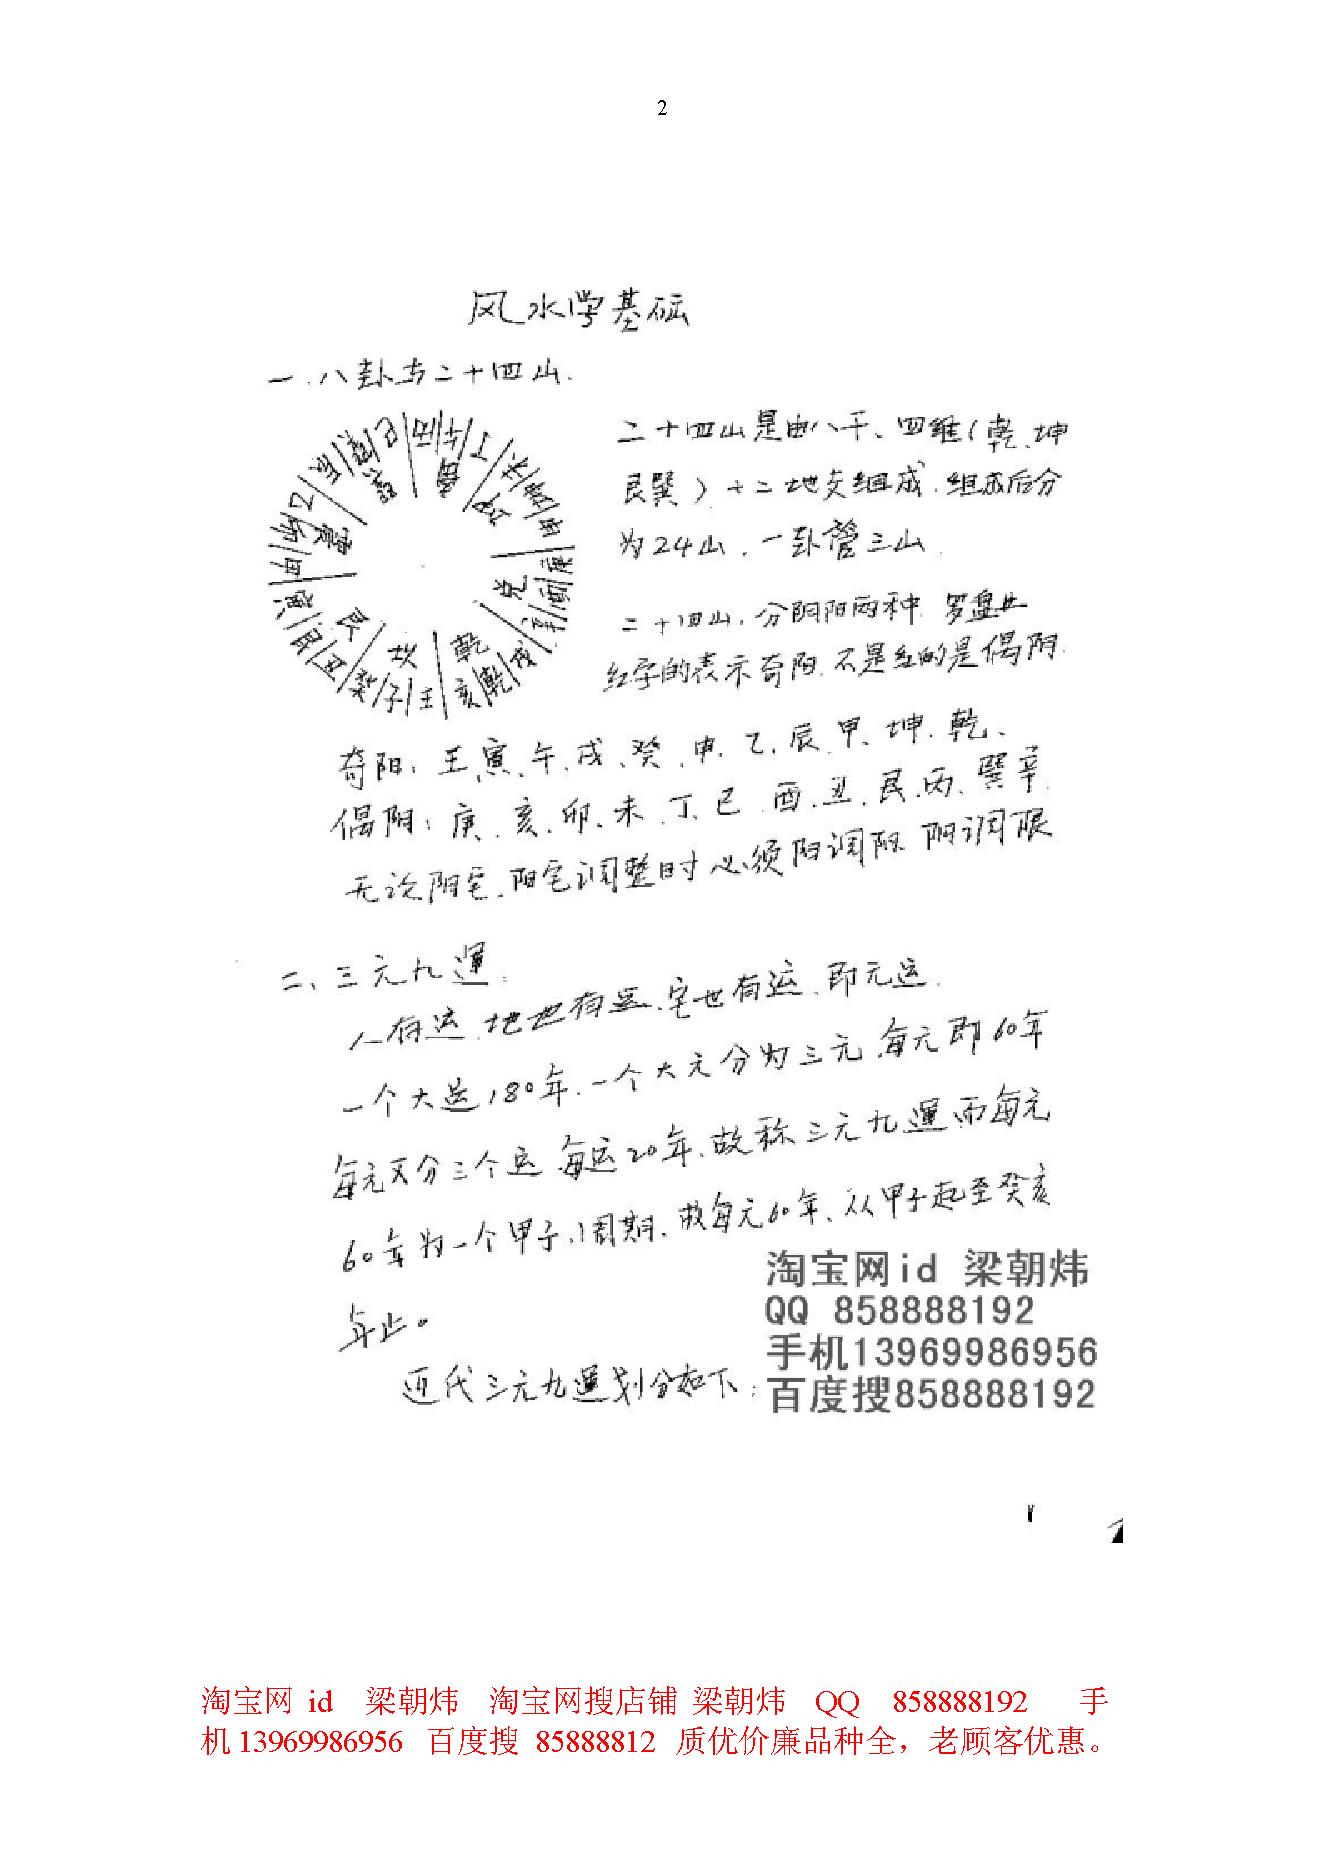 2
风水学基础
一.八卦与二十四山.
巳丙午丁未坤申庚酉辛戌乾亥壬子癸丑艮寅甲卯乙辰巽
巽离坤兑乾坎艮震
二十四山是由八干、四维(乾、坤
艮巽)十二地支组成,组成后分
为24山,一卦管三山
二十四山,分阴阳两种.罗盘上
红字的表示奇阳,不是红的是偶阴.
奇阳:壬、寅、午、戌、癸、申、乙、辰、甲、坤、乾、
偶阴:庚、亥、卯、未、丁、巳、酉、丑、艮、丙、巽、辛
无论阴宅、阳宅调整时必须阳调阳,阴调阴
二、三元九運:
人有运,地也有运,宅也有运,即元运.
一个大运180年.一个大元分为三元,每元即60年
每元又分三个运,每运20年,故称三元九運,而每元
60年为一个甲子小周期.故每元60年、从甲子起至癸亥
年止。
近代三元九運划分如下:
淘宝网id 梁朝炜
QQ 858888192
手机13969986956
百度搜858888192
淘宝网 id 梁朝炜 淘宝网搜店铺 梁朝炜 QQ 858888192 手
机 13969986956 百度搜 85888812 质优价廉品种全，老顾客优惠。